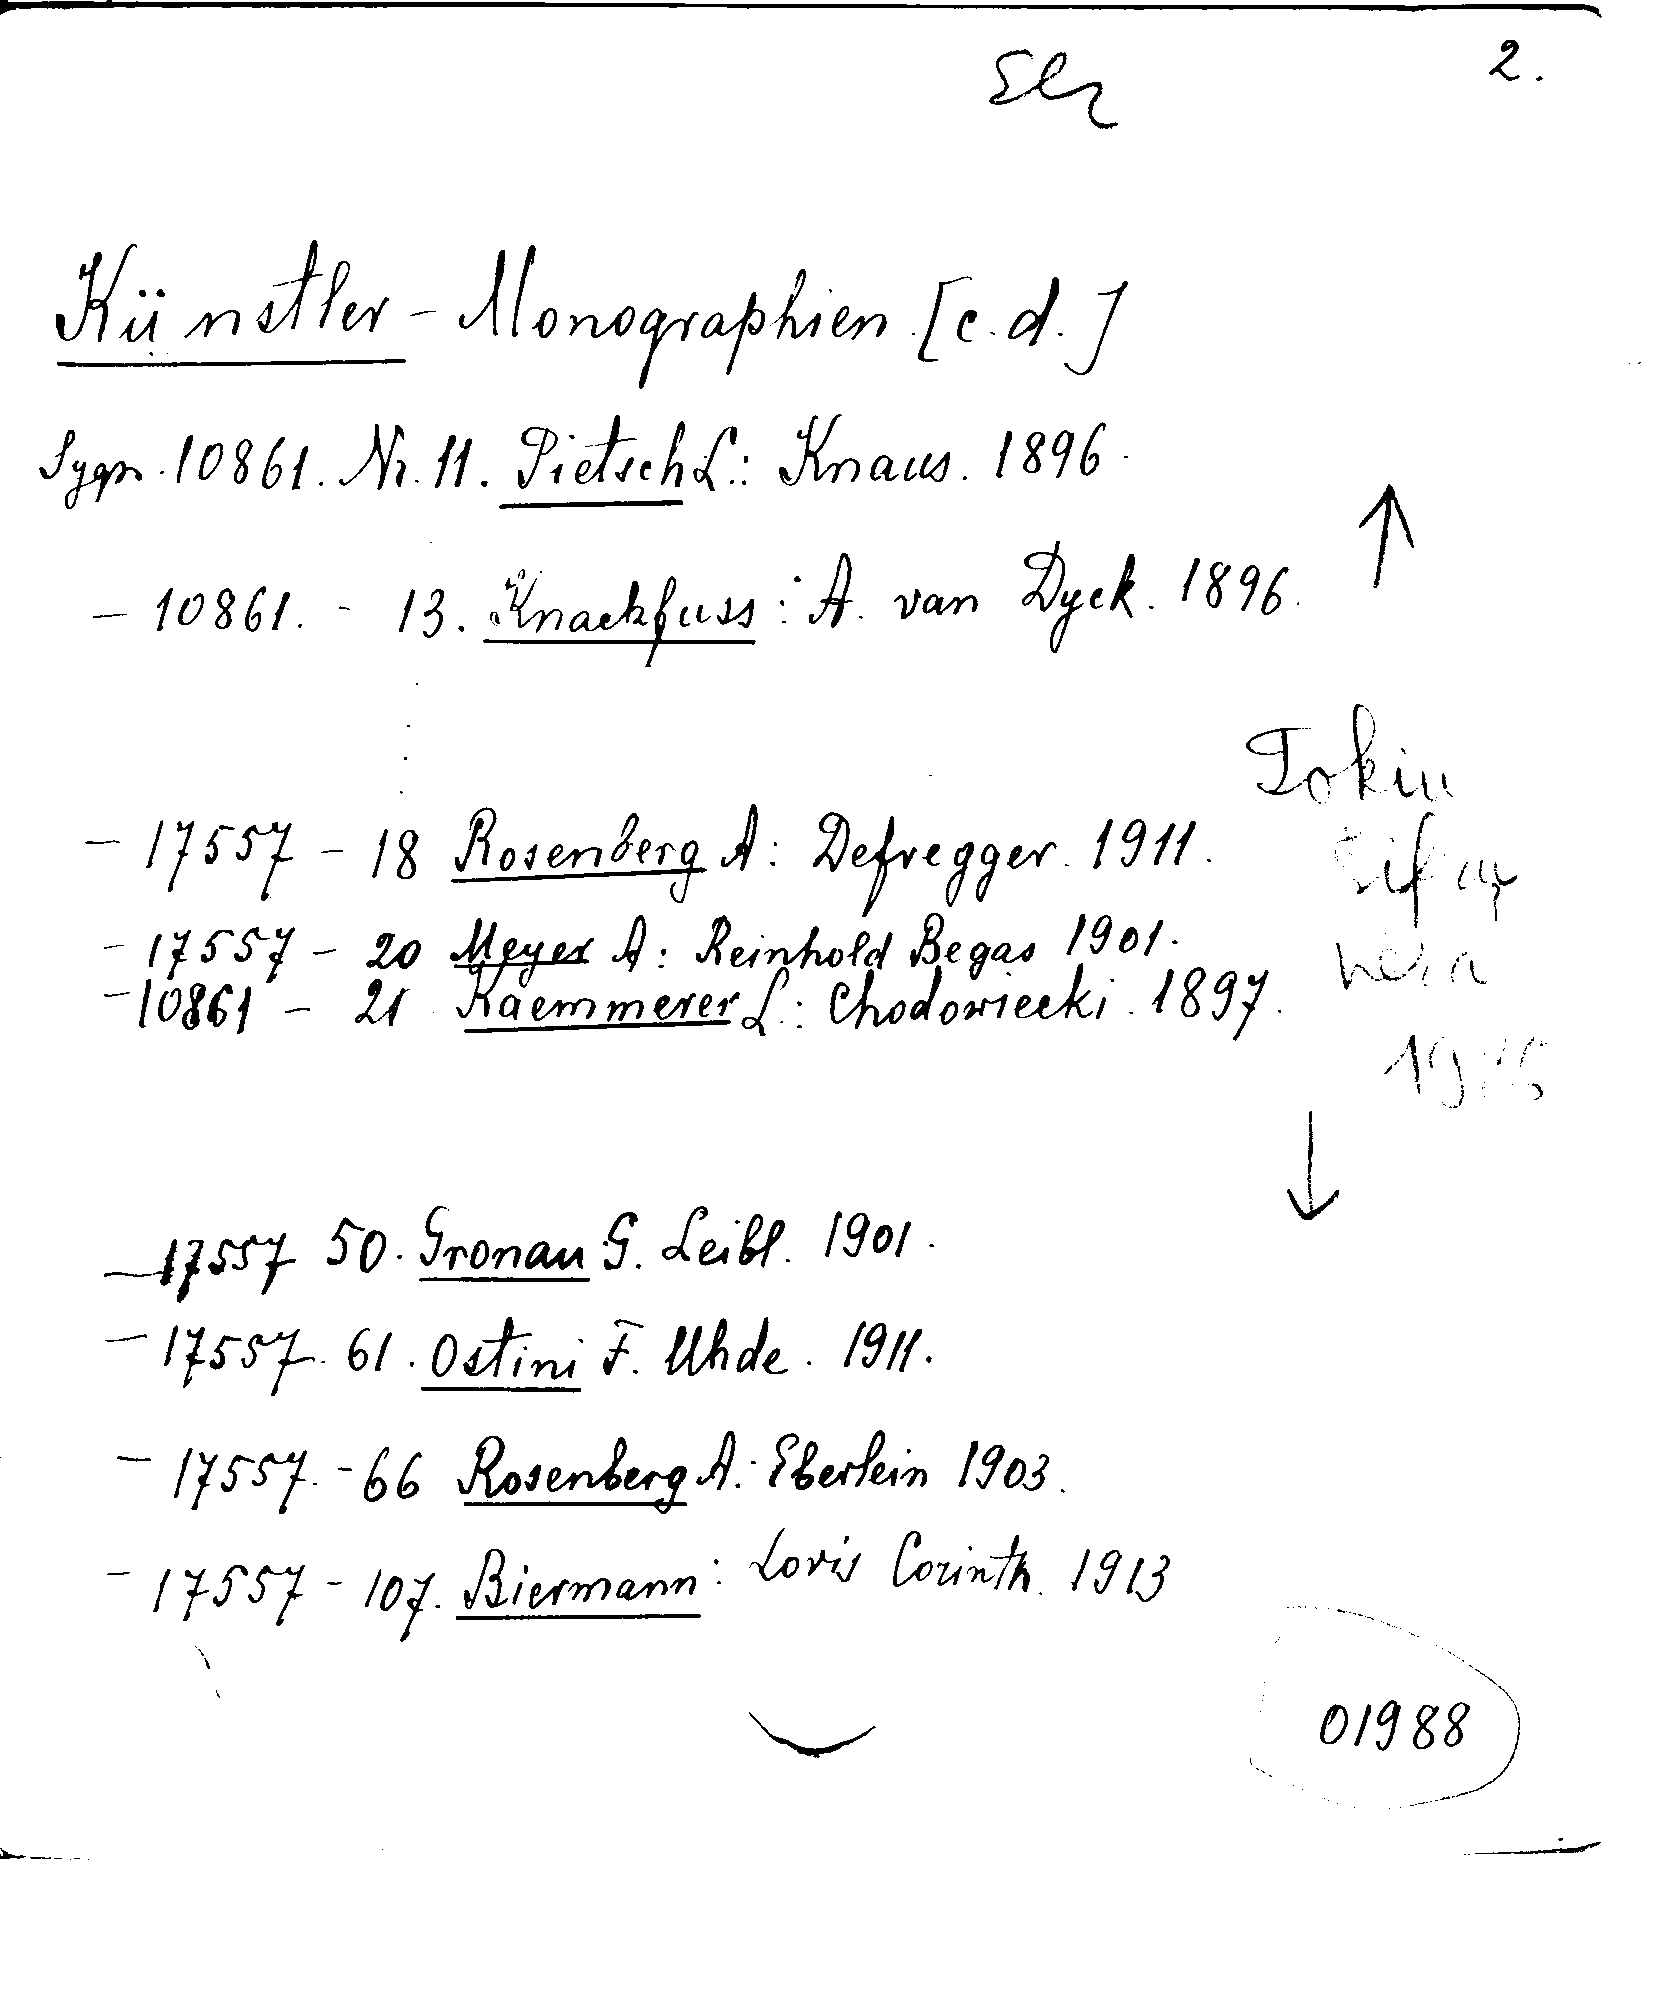 2.
Künstler - Monographien [c.d.]
Sygn. 10861. Nr. 11. Pietsch L.: Knaus. 1896.
- 10861. - 13. Knackfuss: A. van Dyck. 1896.
- 17557 - 18 Rosenberg A: Defregger. 1911.
- 17557 - 20 Meyer A: Reinhold Begas 1901.
- 10861 - 21 Kaemmerer L.: Chodowiecki. 1897.
- 17557 50. Gronau G. Leibl. 1901.
- 17557. 61. Ostini F. Uhde. 1911.
- 17557. - 66 Rosenberg A.: Eberlein 1903.
- 17557 - 107. Biermann: Lovis Corinth. 1913
01988